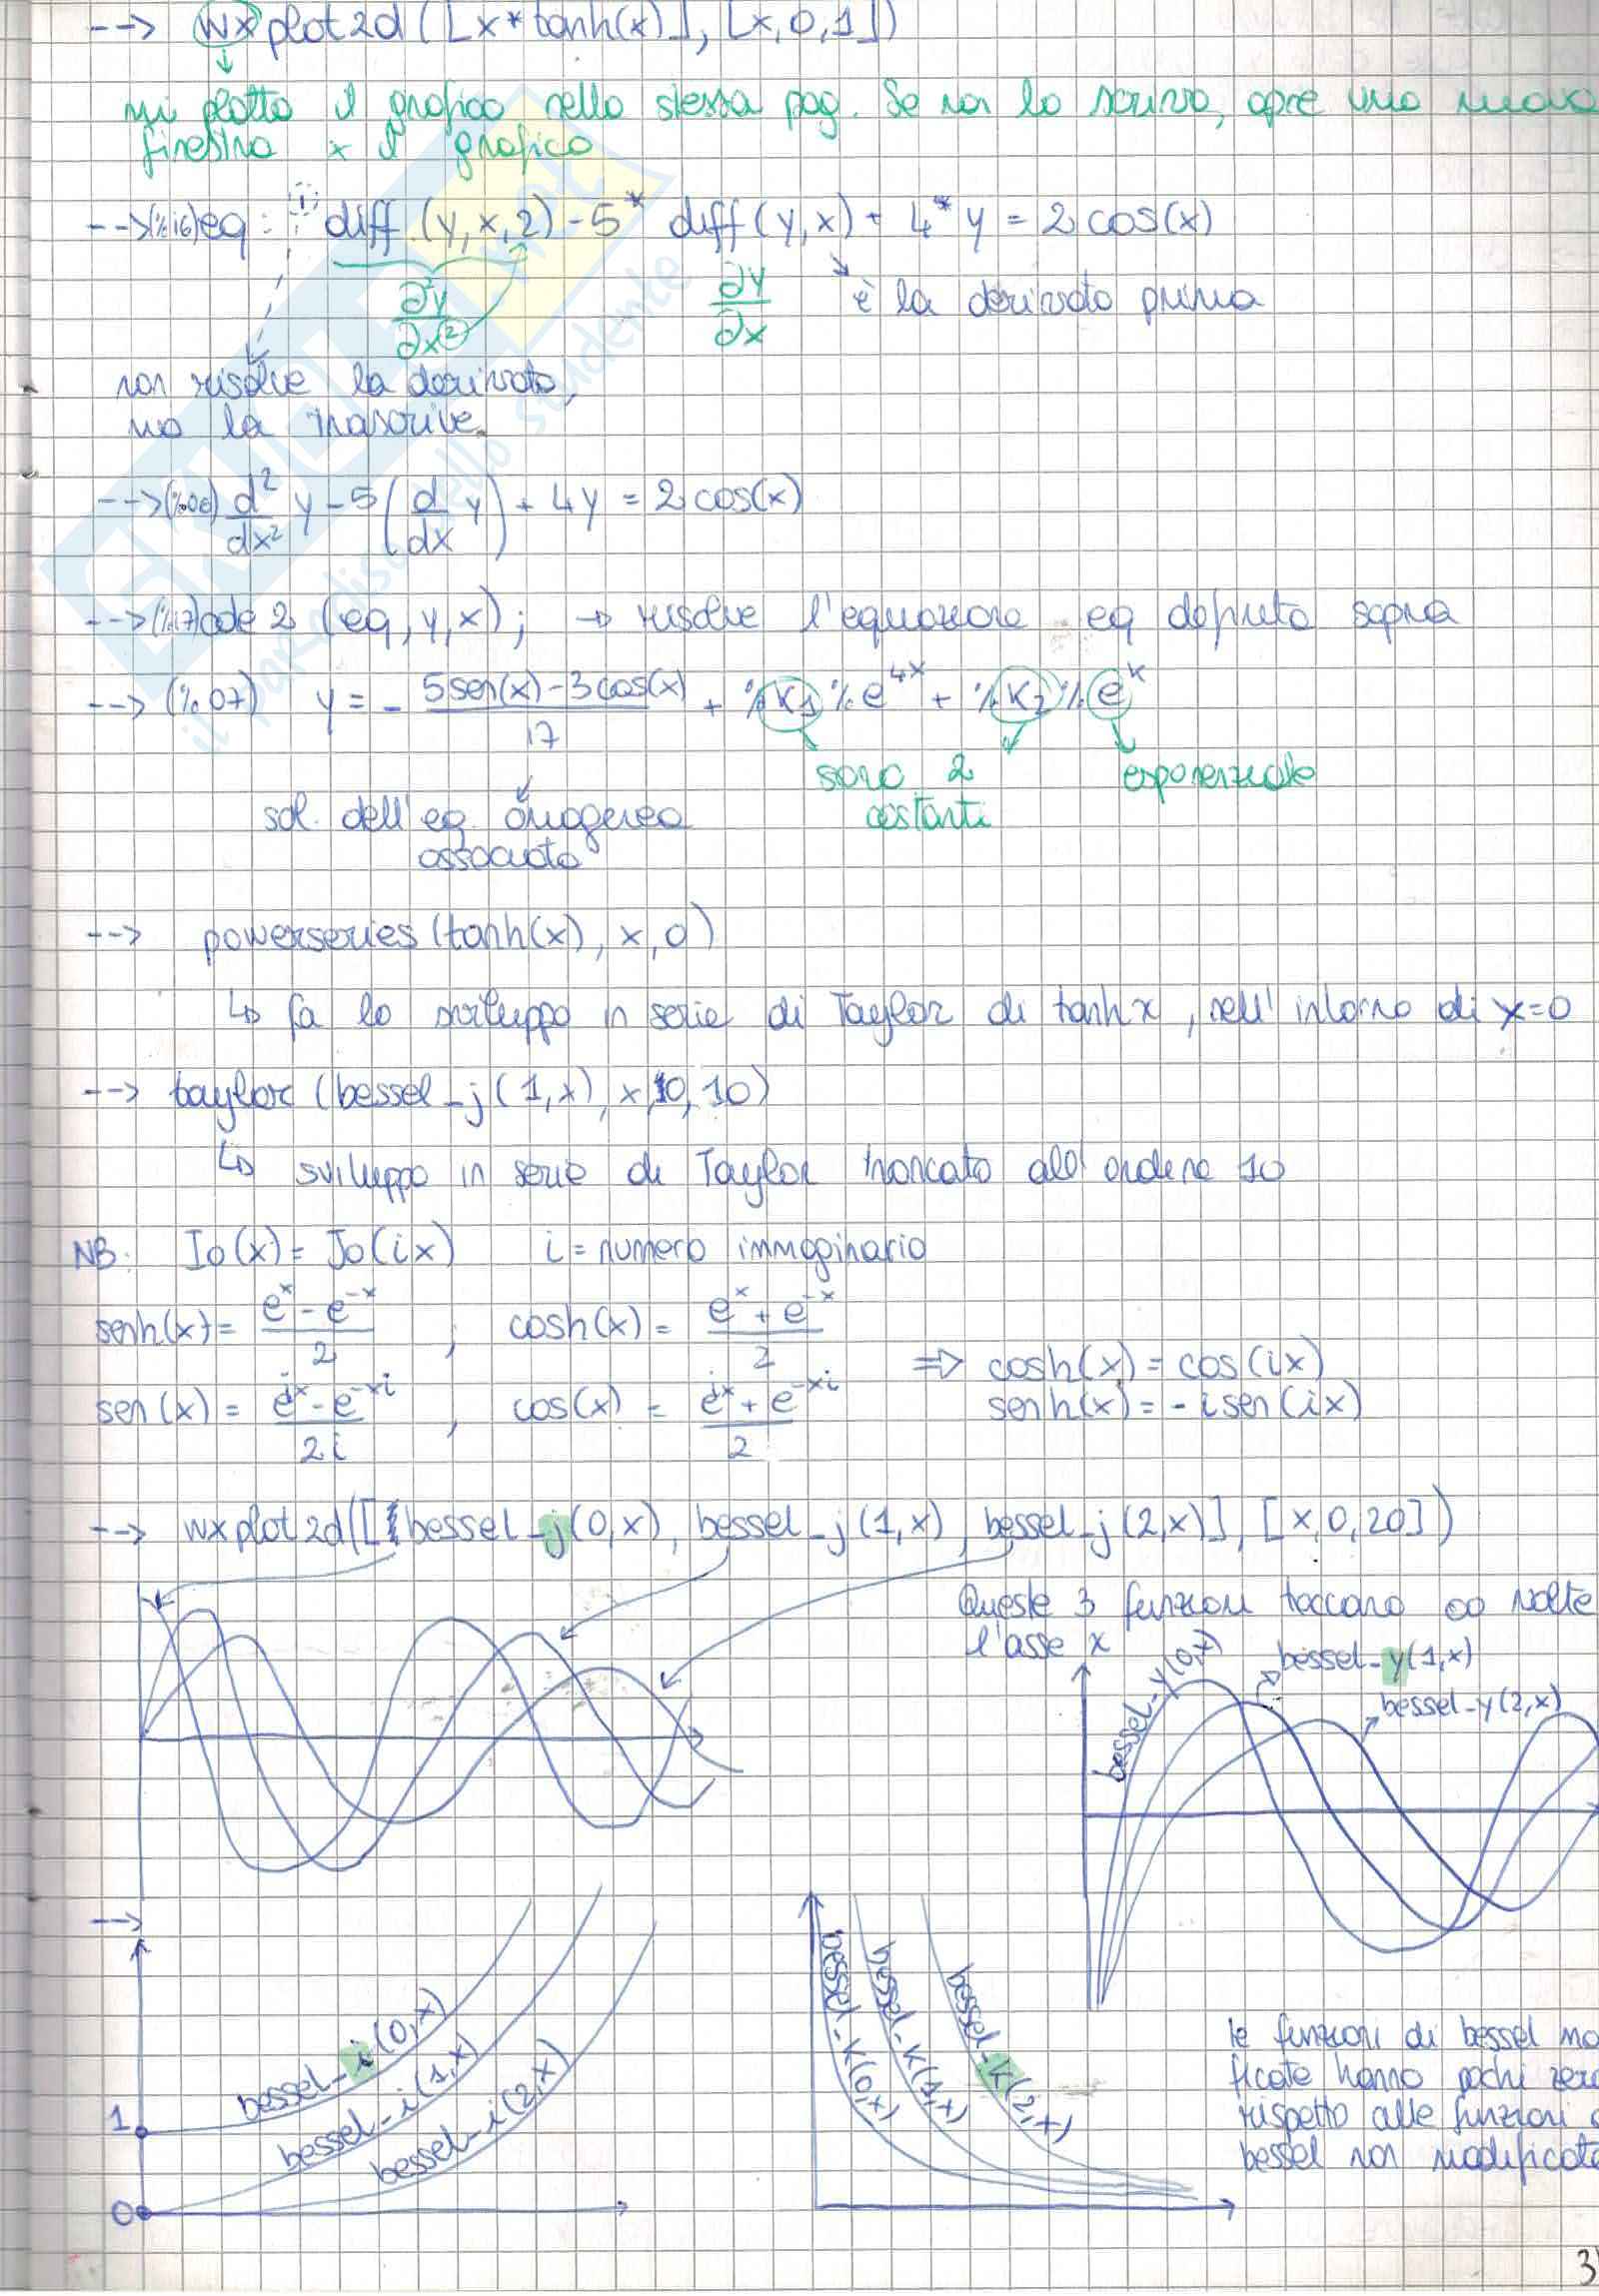 --> wxplot2d([x*tanh(x)], [x,0,1])
mi plotta il grafico nella stessa pag. Se non lo scrivo, apre una nuova
finestra x il grafico
-->(%i6) eq: ' diff (y,x,2) - 5* ' diff (y,x) + 4* y = 2 cos(x)
∂²y/∂x² ∂y/∂x è la derivata prima
non risolve la derivata,
ma la trascrive.
-->(%o6) d²/dx² y - 5 (d/dx y) + 4y = 2 cos(x)
-->(%i7) ode2 (eq, y, x); → risolve l'equazione eq definita sopra
--> (%o7) y = - (5 sen(x) - 3 cos(x))/17 + %K1 %e^4x + %K2 %e^x
sono 2 costanti
esponenziale
sol. dell'eq. omogenea
associata
--> powerseries (tanh(x), x, 0)
↳ fa lo sviluppo in serie di Taylor di tanh x, nell'intorno di x=0
--> taylor (bessel_j(1,x), x, 0, 10)
↳ sviluppo in serie di Taylor troncato all'ordine 10
NB: Io(x) = Jo(ix) i = numero immaginario
senh(x) = (e^x - e^-x)/2 ; cosh(x) = (e^x + e^-x)/2
sen(x) = (e^ix - e^-xi)/2i , cos(x) = (e^ix + e^-xi)/2
=> cosh(x) = cos(ix)
senh(x) = -i sen(ix)
--> wxplot2d([bessel_j(0,x), bessel_j(1,x), bessel_j(2,x)], [x,0,20])
Queste 3 funzioni toccano ∞ volte
l'asse x
bessel_y(0,x)
bessel_y(1,x)
bessel_y(2,x)
-->
bessel_i(0,x)
bessel_i(1,x)
bessel_i(2,x)
1
0
bessel_k(0,x)
bessel_k(1,x)
bessel_k(2,x)
le funzioni di bessel mo
ficate hanno pochi zero
rispetto alle funzioni
bessel non modificate
3
SKUOLA.net
il paradiso dello studente